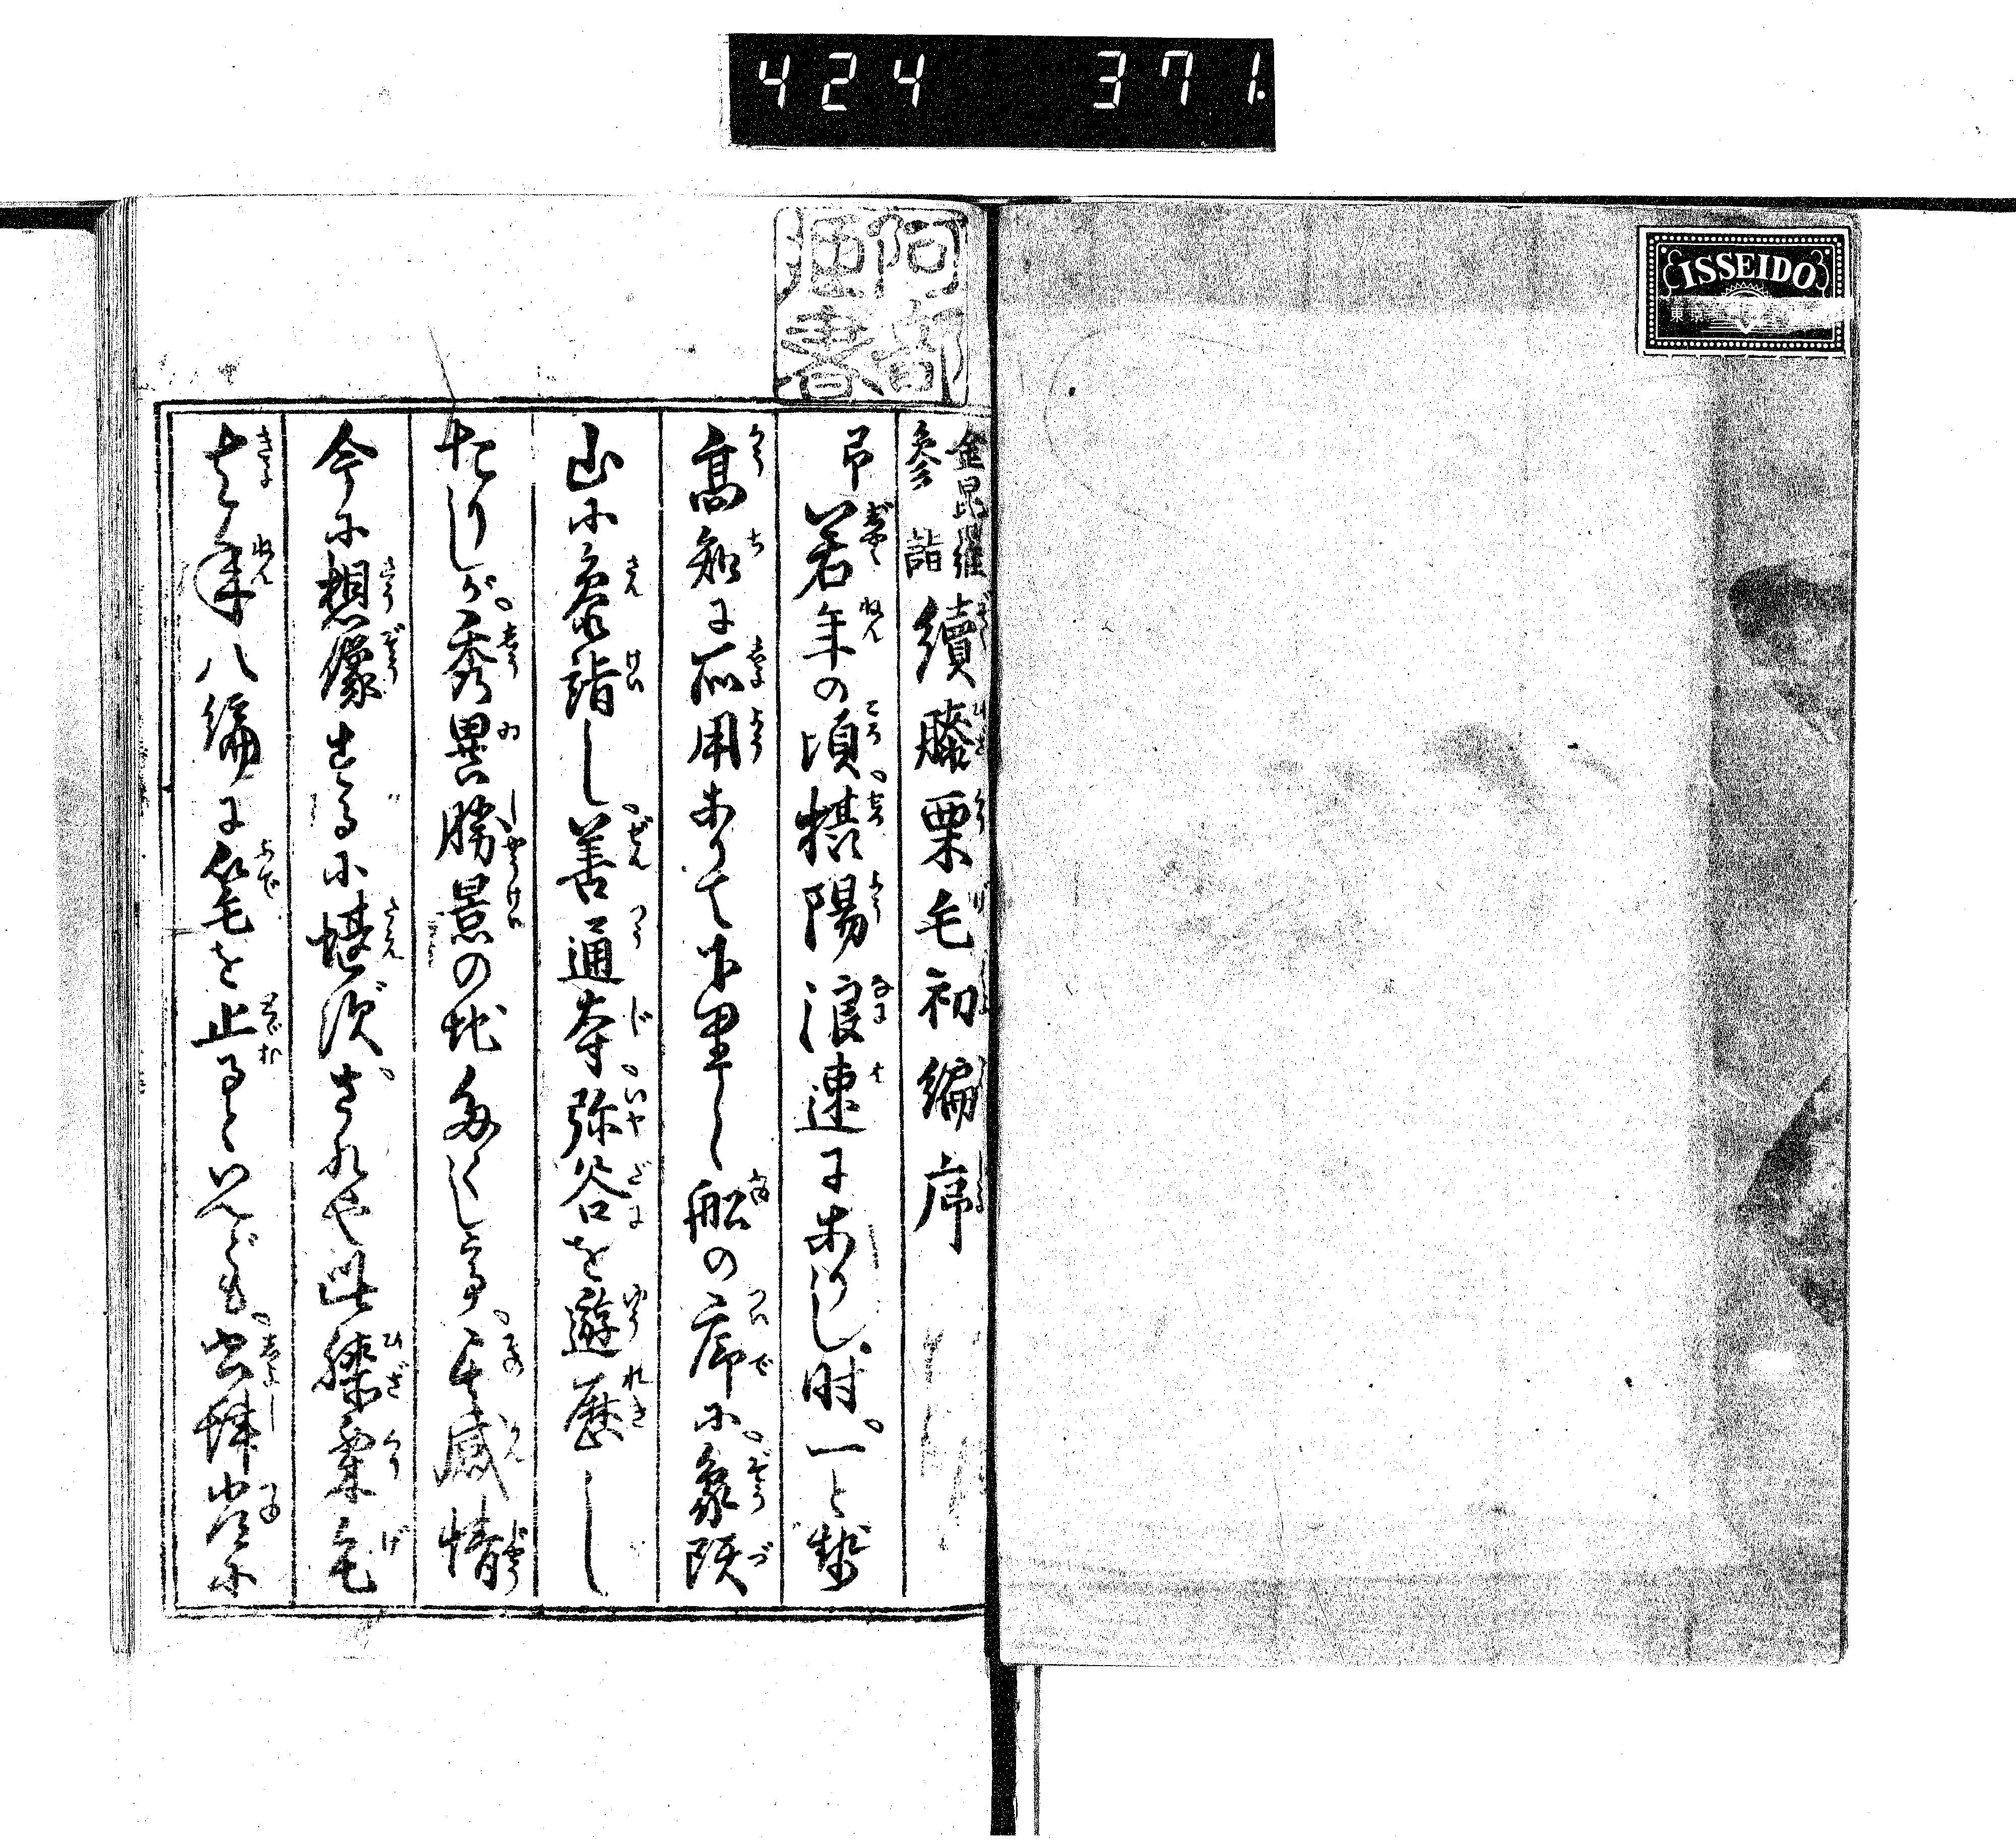 424 371.
ISSEIDO
東京
阿部
書
金毘羅
参詣
續膝栗毛初編序
予若年の頃、摂陽浪速にありし時。一とせ
高知に所用ありて下里し船の序に、象頭
山に参詣し、善通寺、弥谷を遊歴し
たりしが、秀異勝景の地多くして、其感情
今に想像するに堪ず、されや此膝栗毛
去年八編に筆を止るといへども、書肆